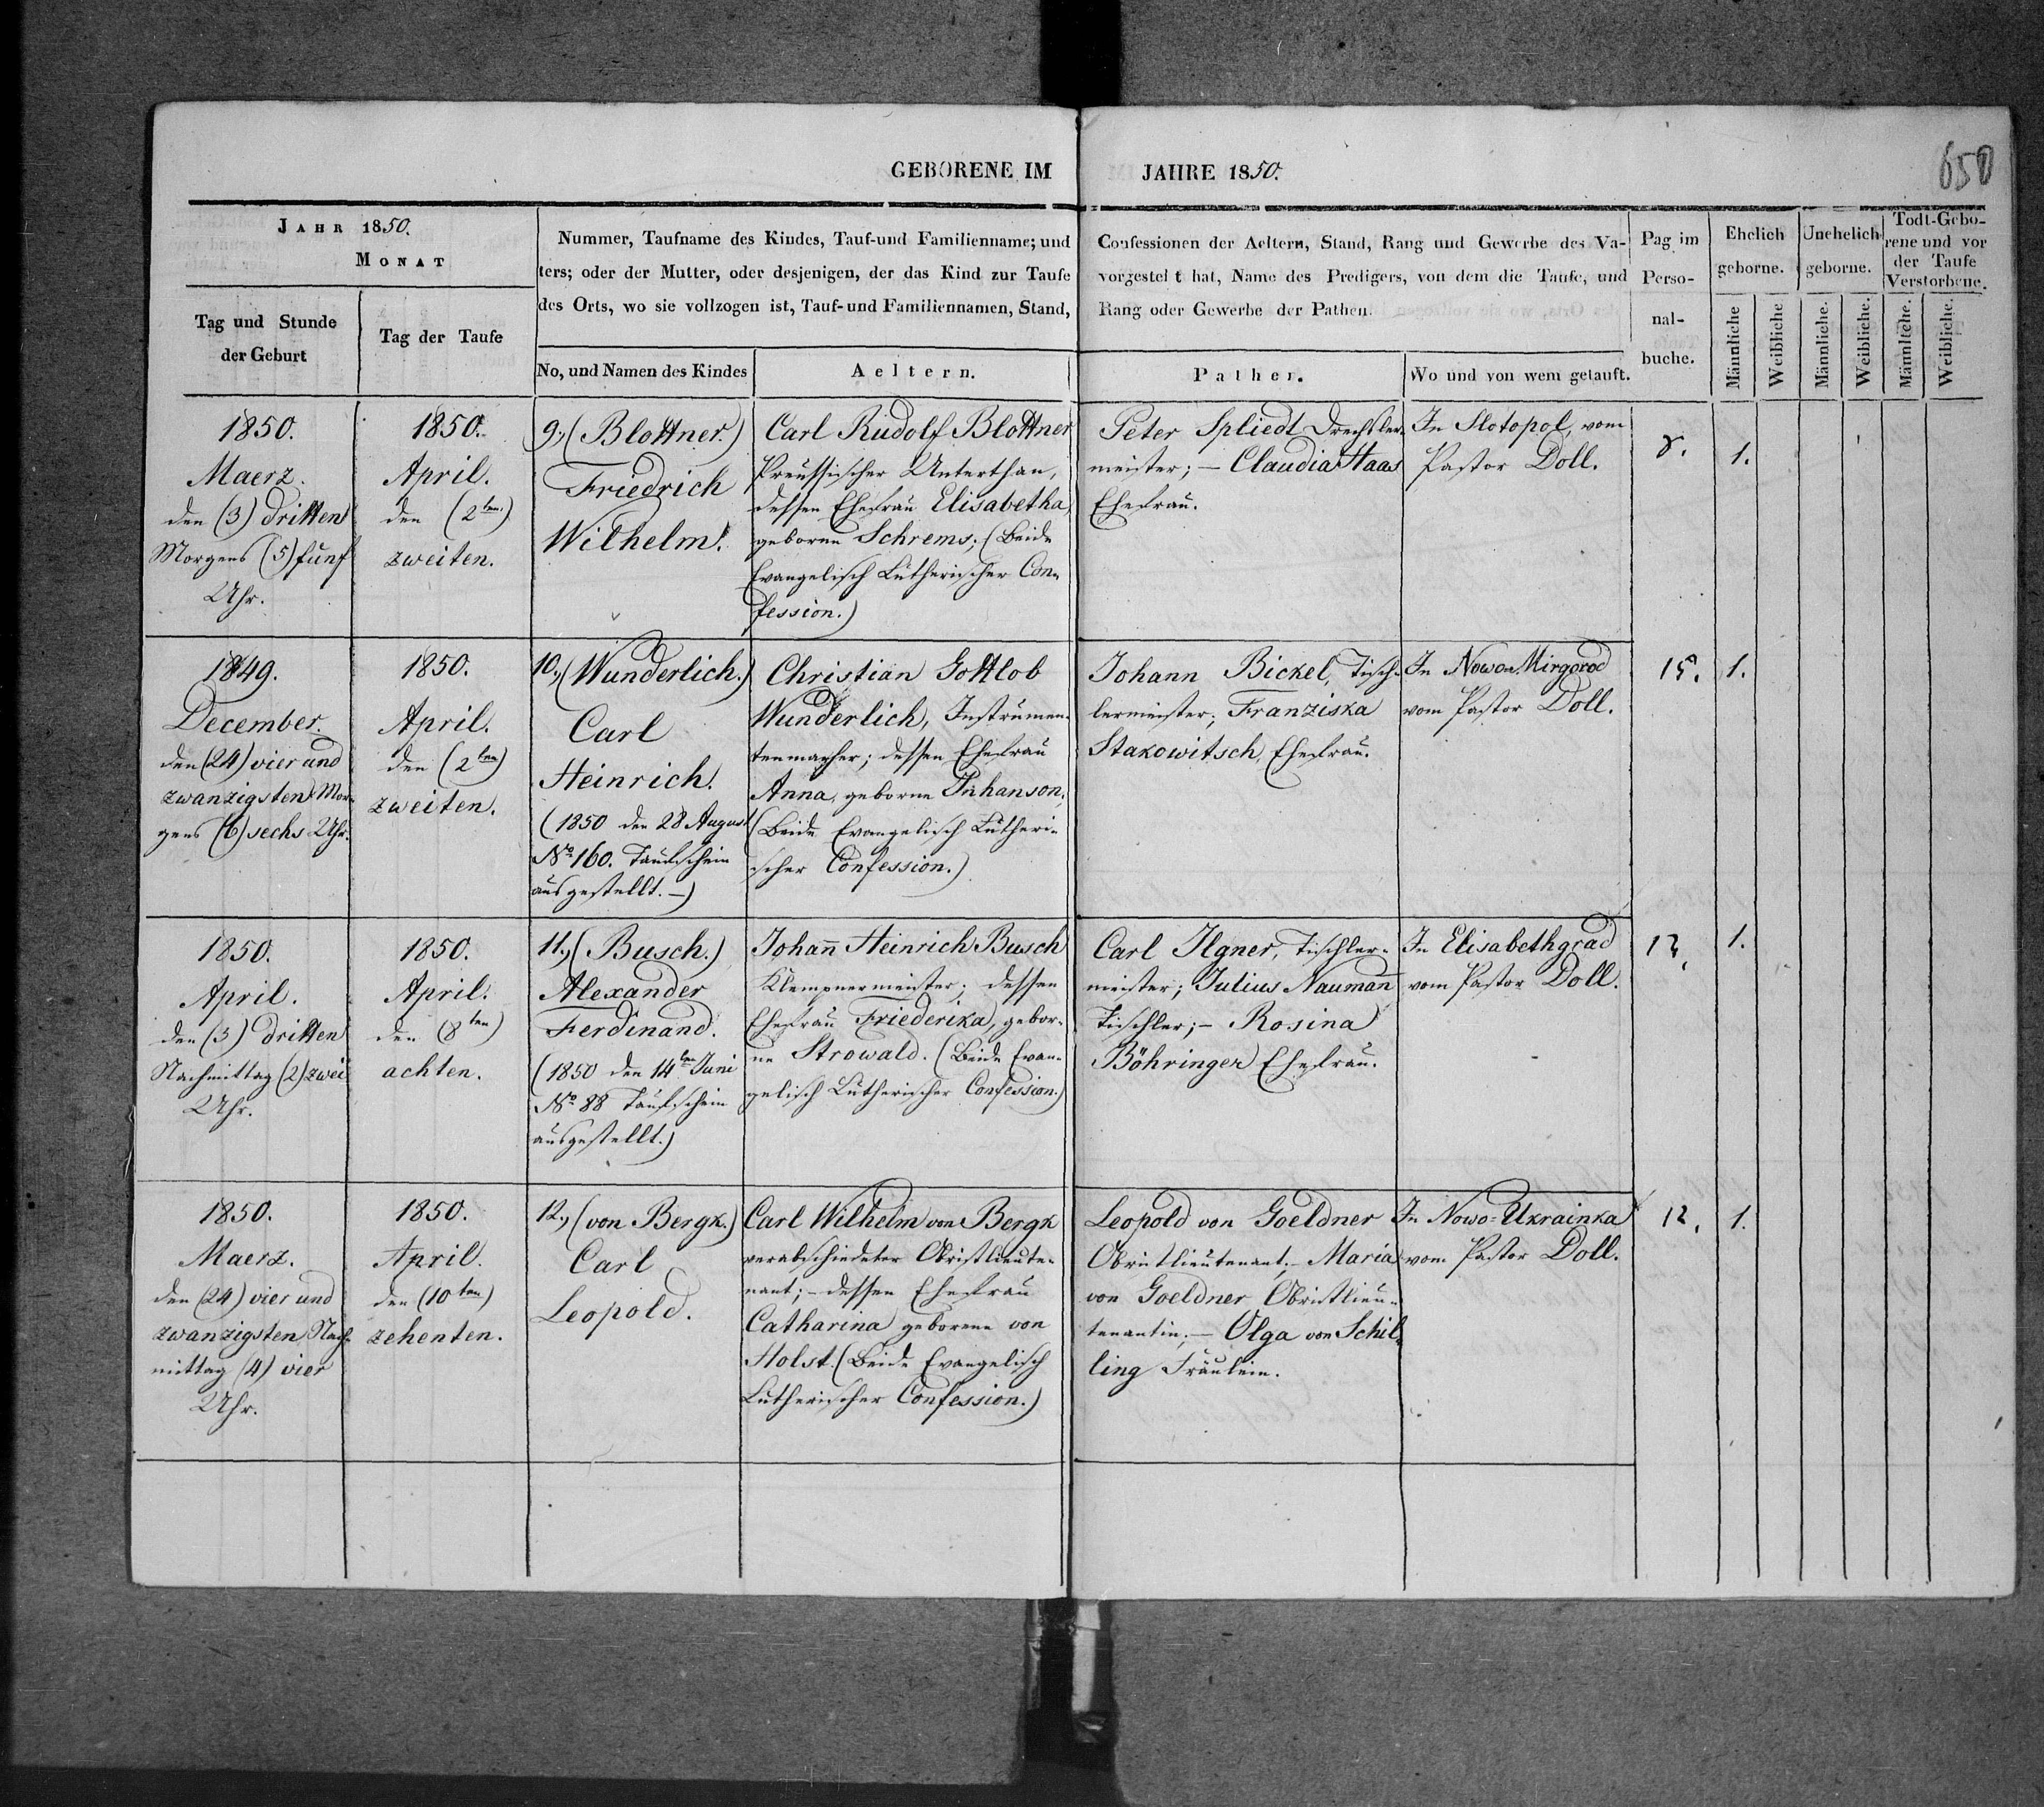 GEBORENE IM JAHRE 1850.
650
JAHR 1850.
MONAT
Tag und Stunde
der Geburt
Tag der Taufe
Nummer, Taufname des Kindes, Tauf-und Familienname; und
ters; oder der Mutter, oder desjenigen, der das Kind zur Taufe
des Orts, wo sie vollzogen ist, Tauf-und Familiennamen, Stand,
No, und Namen des Kindes
Aeltern.
Confessionen der Aeltern, Stand, Rang und Gewerbe des Va-
vorgestellt hat, Name des Predigers, von dem die Taufe, und
Rang oder Gewerbe der Pathen.
Pather.
Wo und von wem getauft.
Pag im
Perso-
nal-
buche.
Ehelich
geborne.
Unehelich
geborne.
Todt-Gebo-
rene und vor
der Taufe
Verstorbene.
Männliche
Weibliche
Männliche.
Weibliche.
Männliche.
Weibliche.
1850.
Maerz.
den (3) dritten
Morgens (5) fünf
Uhr.
1850.
April.
den (2ten)
zweiten.
9., (Blottner.)
Friedrich
Wilhelm.
Carl Rudolf Blottner
Preussischer Unterthan,
dessen Ehefrau Elisabetha,
geborne Schrems; (Beide
Evangelisch Lutherischer Con-
fession.)
Peter Spliedt Drechsler-
meister; – Claudia Haas
Ehefrau.
In Slotopol, vom
Pastor Doll.
8.
1.
1849.
December.
den (24) vier und
zwanzigsten Mor-
gens (6) sechs Uhr.
1850.
April.
den (2ten)
zweiten.
10., (Wunderlich.)
Carl
Heinrich.
(1850 den 28 August
No 160. Taufschein
ausgestellt. –)
Christian Gottlob
Wunderlich, Instrumen-
tenmacher; dessen Ehefrau
Anna, geborne Juhanson,
(Beide Evangelisch Lutheri-
scher Confession.)
Johann Bickel, Tisch-
lermeister; Franziska
Stakowitsch, Ehefrau.
In Nowo-Mirgorod
vom Pastor Doll.
15.
1.
1850.
April.
den (3) dritten
Nachmittag (2) zwei
Uhr.
1850.
April.
den (8ten)
achten.
11., (Busch.)
Alexander
Ferdinand.
(1850 den 14ten Juni
No 88 Taufschein
ausgestellt.)
Johann Heinrich Busch
Klempnermeister; dessen
Ehefrau Friederika, gebor-
ne Strowald. (Beide Evan-
gelisch Lutherischer Confession.)
Carl Ilgner, Tischler-
meister; Julius Naumann
Tischler; – Rosina
Böhringer Ehefrau.
In Elisabethgrad
vom Pastor Doll.
1.
1850.
Maerz.
den (24) vier und
zwanzigsten Nach-
mittag (4) vier
Uhr.
1850.
April.
den (10ten)
zehenten.
12., (von Bergk.)
Carl
Leopold.
Carl Wilhelm von Bergk
verabschiedeter Obristlieute-
nant; – dessen Ehefrau
Catharina geborene von
Holst. (Beide Evangelisch
Lutherischer Confession.)
Leopold von Goeldner
Obristlieutenant; – Maria
von Goeldner Obristlieu-
tenantin; – Olga von Schil-
ling Fräulein.
In Nowo-Ukrainka
vom Pastor Doll.
12.
1.